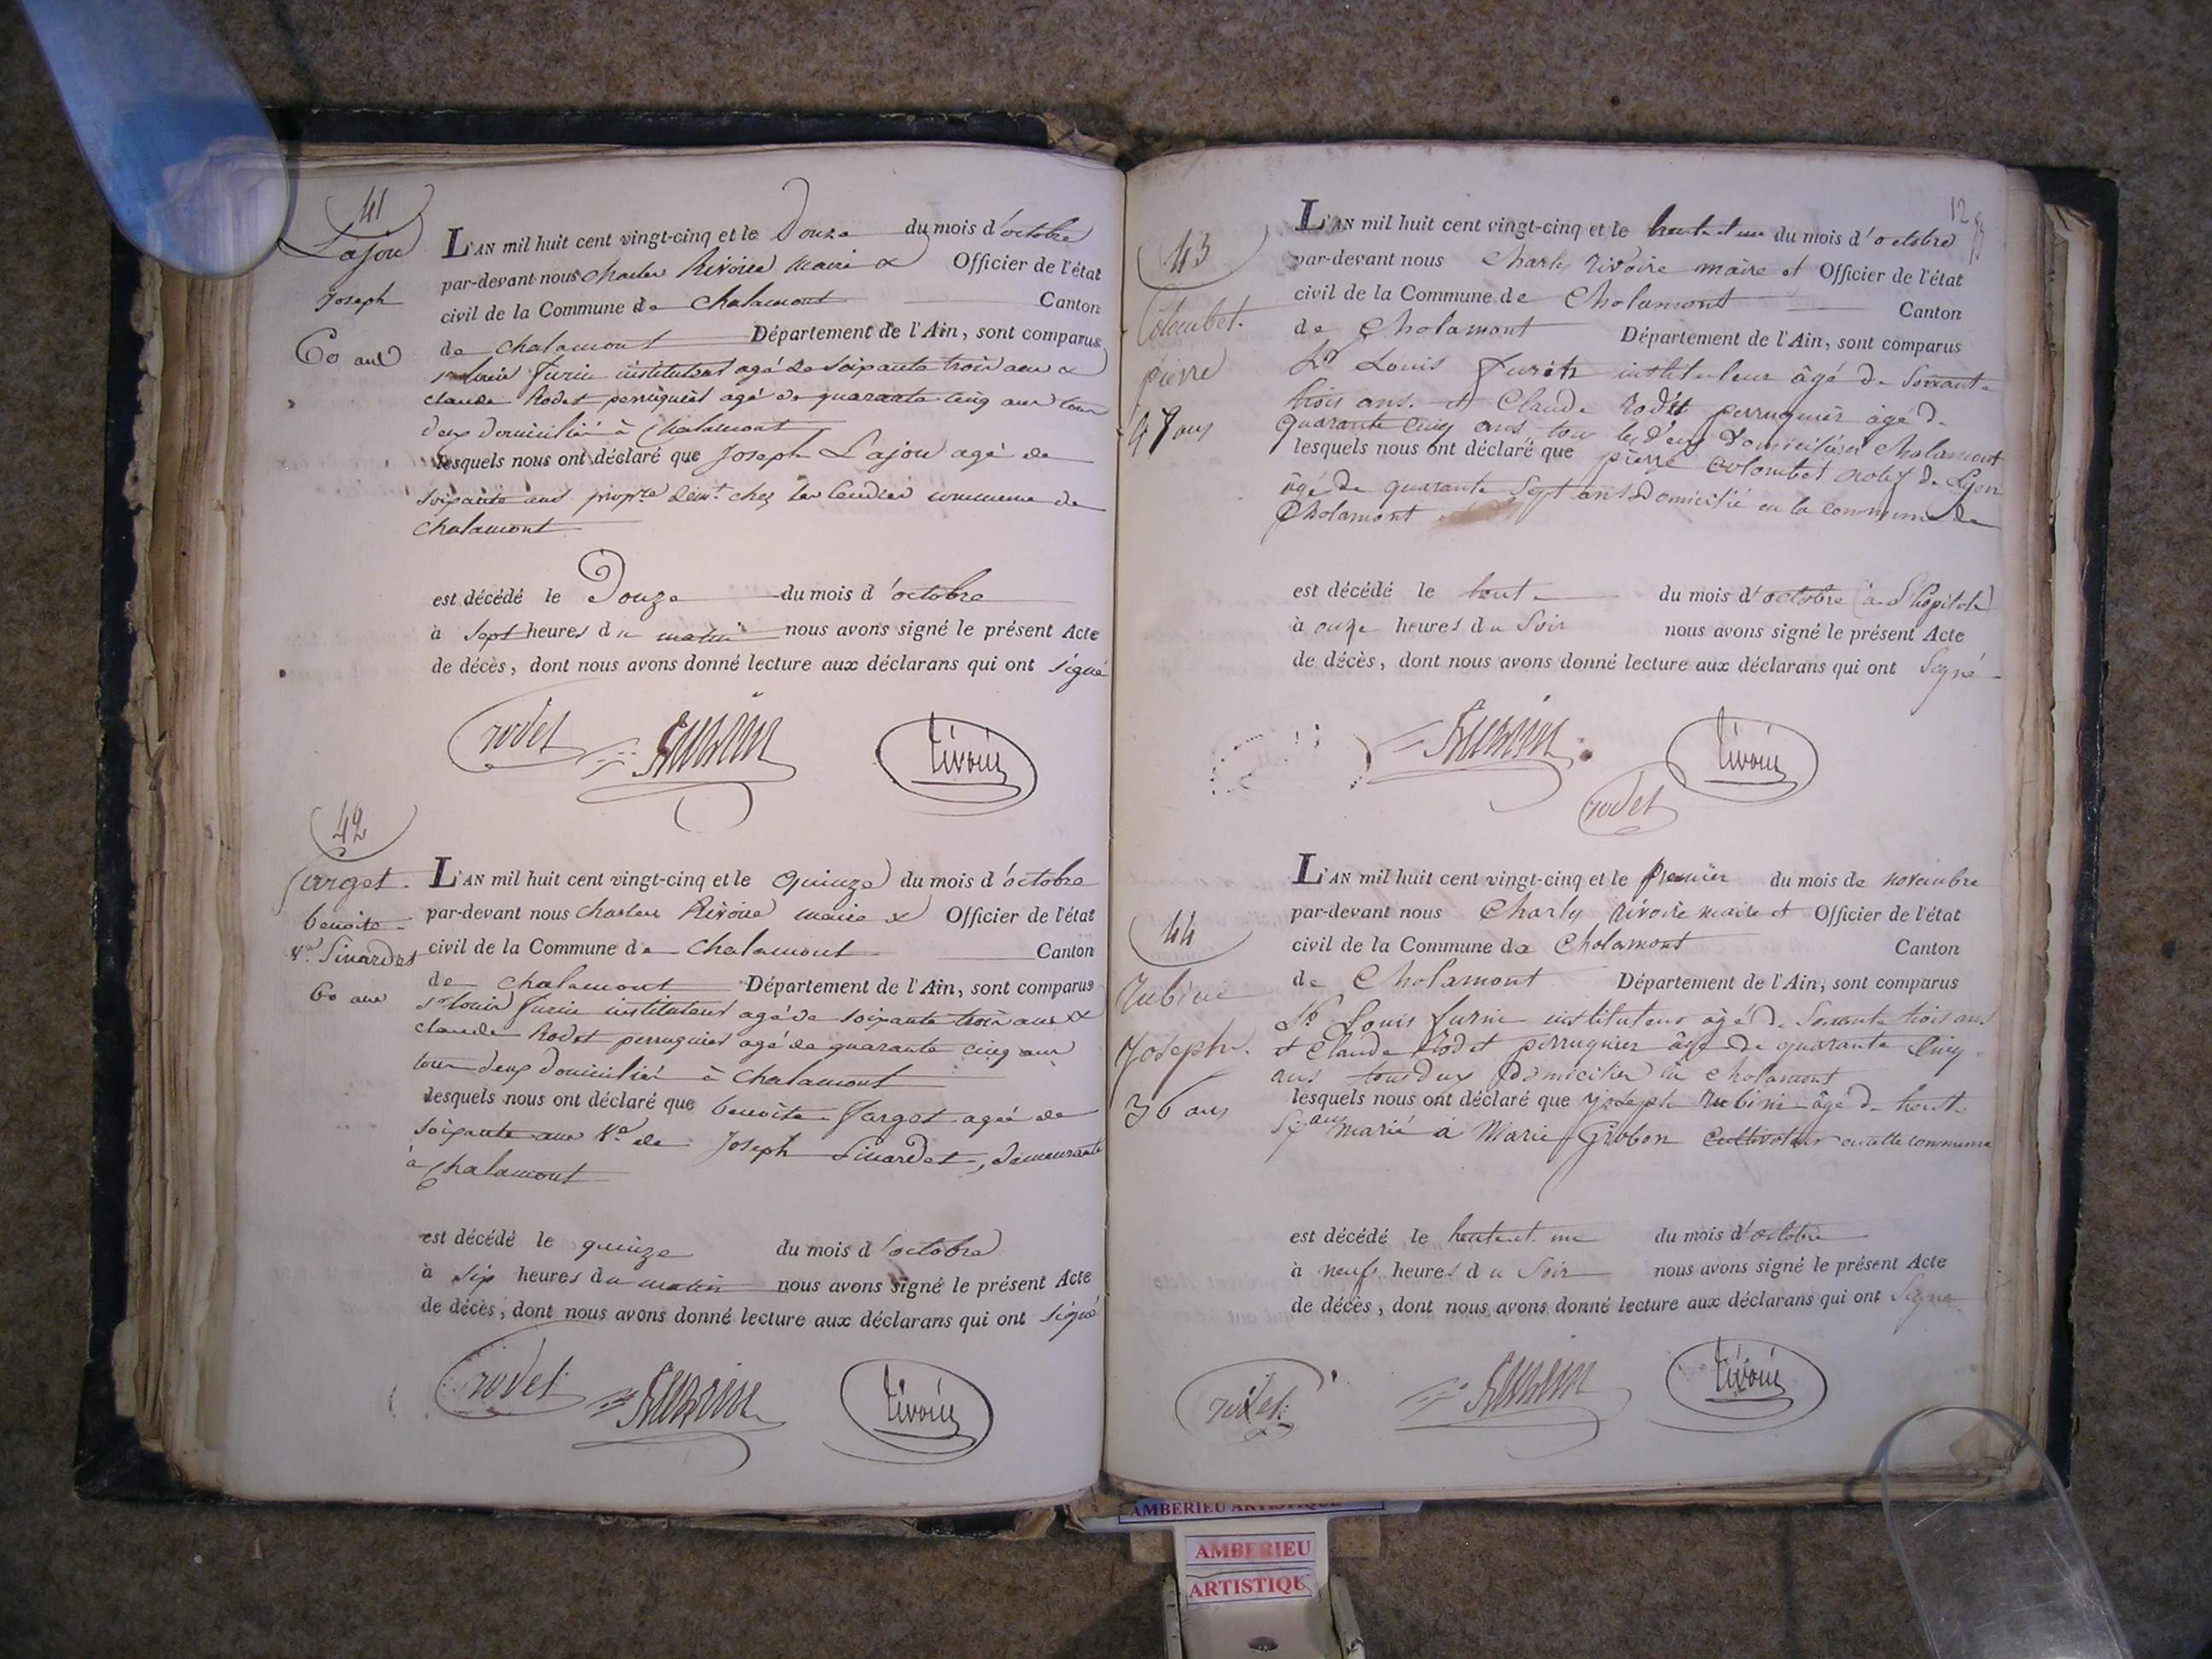 41
Lajou
Joseph
60 ans
L'AN mil huit cent vingt-cinq et le Douze du mois d'octobre
par-devant nous charles Rivoire maire & Officier de l'état
civil de la Commune de Chalamont Canton
de chalamont Département de l'Ain, sont comparus
sr louis furin instituteur agé de soixante trois ans &
claude Rodet perruquier agé de quarante cinq ans tous
deux domiciliés à Chalamont
lesquels nous ont déclaré que Joseph Lajou agé de
soixante ans propre demt chez commune de
chalamont
est décédé le Douze du mois d'octobre
à sept heures du matin nous avons signé le présent Acte
de décès, dont nous avons donné lecture aux déclarans qui ont signé
rodet furin rivoire
42
farget
benoite
Ve Sinardet
60 ans
L'AN mil huit cent vingt-cinq et le Quinze du mois d'octobre
par-devant nous charles Rivoire maire & Officier de l'état
civil de la Commune de chalamont Canton
de chalamont Département de l'Ain, sont comparus
sr louis furin instituteur agé de soixante trois ans &
claude Rodet perruquier agé de quarante cinq ans
tous deux domiciliés à chalamont
lesquels nous ont déclaré que benoite farget agée de
soixante ans Ve de Joseph Sinardet, demeurante
à chalamont
est décédé le quinze du mois d'octobre
à six heures du matin nous avons signé le présent Acte
de décès, dont nous avons donné lecture aux déclarans qui ont signé
rodet furin rivoire
12
43
Colombet
pierre
47 ans
L'AN mil huit cent vingt-cinq et le trente et un du mois d'octobre
par-devant nous Charly rivoire maire et Officier de l'état
civil de la Commune de Cholamont Canton
de Cholamont Département de l'Ain, sont comparus
Sr Louis furin instituteur âgé de Soixante
trois ans et Claude rodet perruquier âgé de
quarante cinq ans tou les deux Domiciliés a Cholamont
lesquels nous ont déclaré que pierre Colombet natif de Lyon
âgé de quarante Sept ans Domicilié en la commune de
Cholamont
est décédé le trente du mois d'octobre (à l'hopital)
à onze heures du Soir nous avons signé le présent Acte
de décès, dont nous avons donné lecture aux déclarans qui ont Signé
furin rivoire
rodet
44
Rubini
Joseph
36 ans
L'AN mil huit cent vingt-cinq et le premier du mois de novembre
par-devant nous Charly rivoire maire et Officier de l'état
civil de la Commune de Cholamont Canton
de Cholamont Département de l'Ain, sont comparus
Sr Louis furin instituteur âgé de Soixante trois ans
et Claude Rodet perruquier âge de quarante Cinq
ans tous deux Domicilier à Cholamont
lesquels nous ont déclaré que joseph Rubini âgé de trente
Six ans marié à Marie Gibbon Cultivateur en cette commune
est décédé le trente et un du mois d'octobre
à neufs heures du Soir nous avons signé le présent Acte
de décès, dont nous avons donné lecture aux déclarans qui ont Signé
rodet furin rivoire
AMBERIEU ARTISTIQUE
AMBERIEU
ARTISTIQU